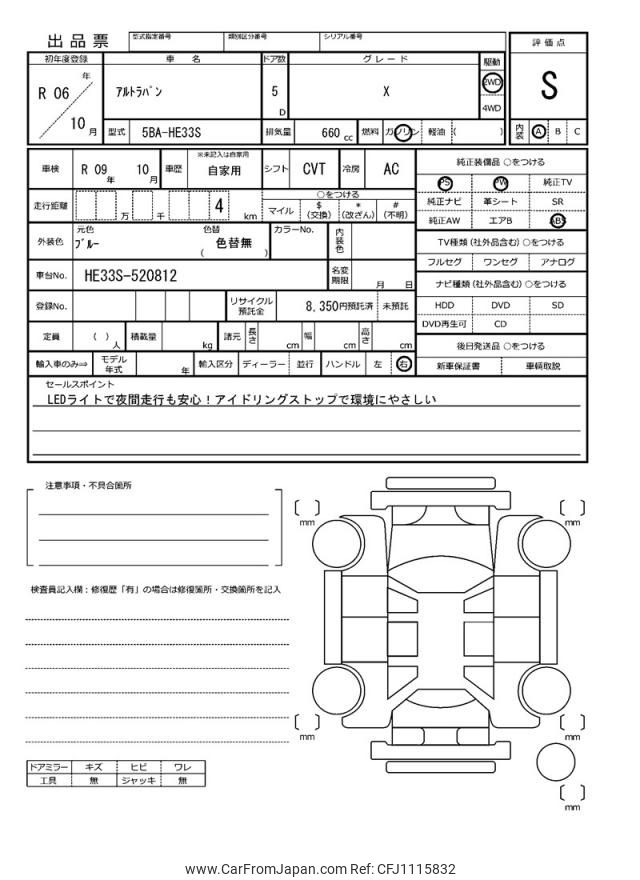 出品票
型式指定番号 類別区分番号 シリアル番号
評価点
S
内装 A B C
初年度登録 車名 ドア数 グレード 駆動
R 06 年 10 月
アルトラパン 5 D X 2WD 4WD
型式 5BA-HE33S 排気量 660 cc 燃料 ガソリン 軽油 ( )
車検 R 09 年 10 月 車歴 ※未記入は自家用 自家用 シフト CVT 冷房 AC
走行距離 万 千 4 km
○をつける
マイル $ (交換) * (改ざん) # (不明)
外装色 元色 ブルー 色替 色替無 ( ) カラーNo. 内装色
車台No. HE33S-520812 名変期限 月 日
登録No. リサイクル預託金 8,350円預託済 未預託
定員 ( ) 人 積載量 kg 諸元 長さ cm 幅 cm 高さ cm
輸入車のみ⇒ モデル年式 年 輸入区分 ディーラー 並行 ハンドル 左 右
純正装備品 ○をつける
PS PW 純正TV
純正ナビ 革シート SR
純正AW エアB ABS
TV種類 (社外品含む) ○をつける
フルセグ ワンセグ アナログ
ナビ種類 (社外品含む) ○をつける
HDD DVD SD
DVD再生可 CD
後日発送品 ○をつける
新車保証書 車輌取説
セールスポイント
LEDライトで夜間走行も安心！アイドリングストップで環境にやさしい
注意事項・不具合箇所
検査員記入欄：修復歴「有」の場合は修復箇所・交換箇所を記入
mm
mm
mm
mm
mm
ドアミラー キズ ヒビ ワレ
工具 無 ジャッキ 無
www.CarFromJapan.com Ref: CFJ1115832